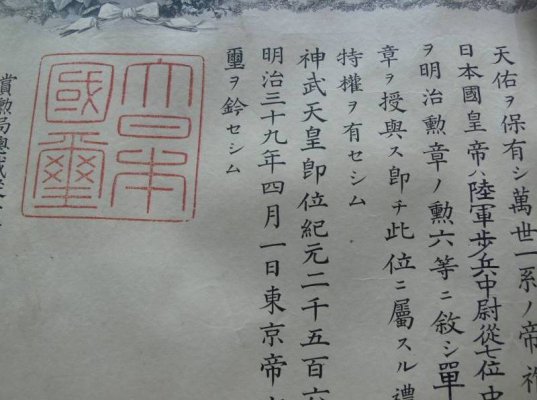 天佑ヲ保有シ萬世一系ノ帝祚
日本國皇帝ハ陸軍歩兵中尉從七位中
ヲ明治勲章ノ勲六等ニ敘シ單
章ヲ授與ス卽チ此位ニ屬スル禮
特權ヲ有セシム
神武天皇卽位紀元二千五百六
明治三十九年四月一日東京帝
璽ヲ鈐セシム
大日本國璽
賞勲局